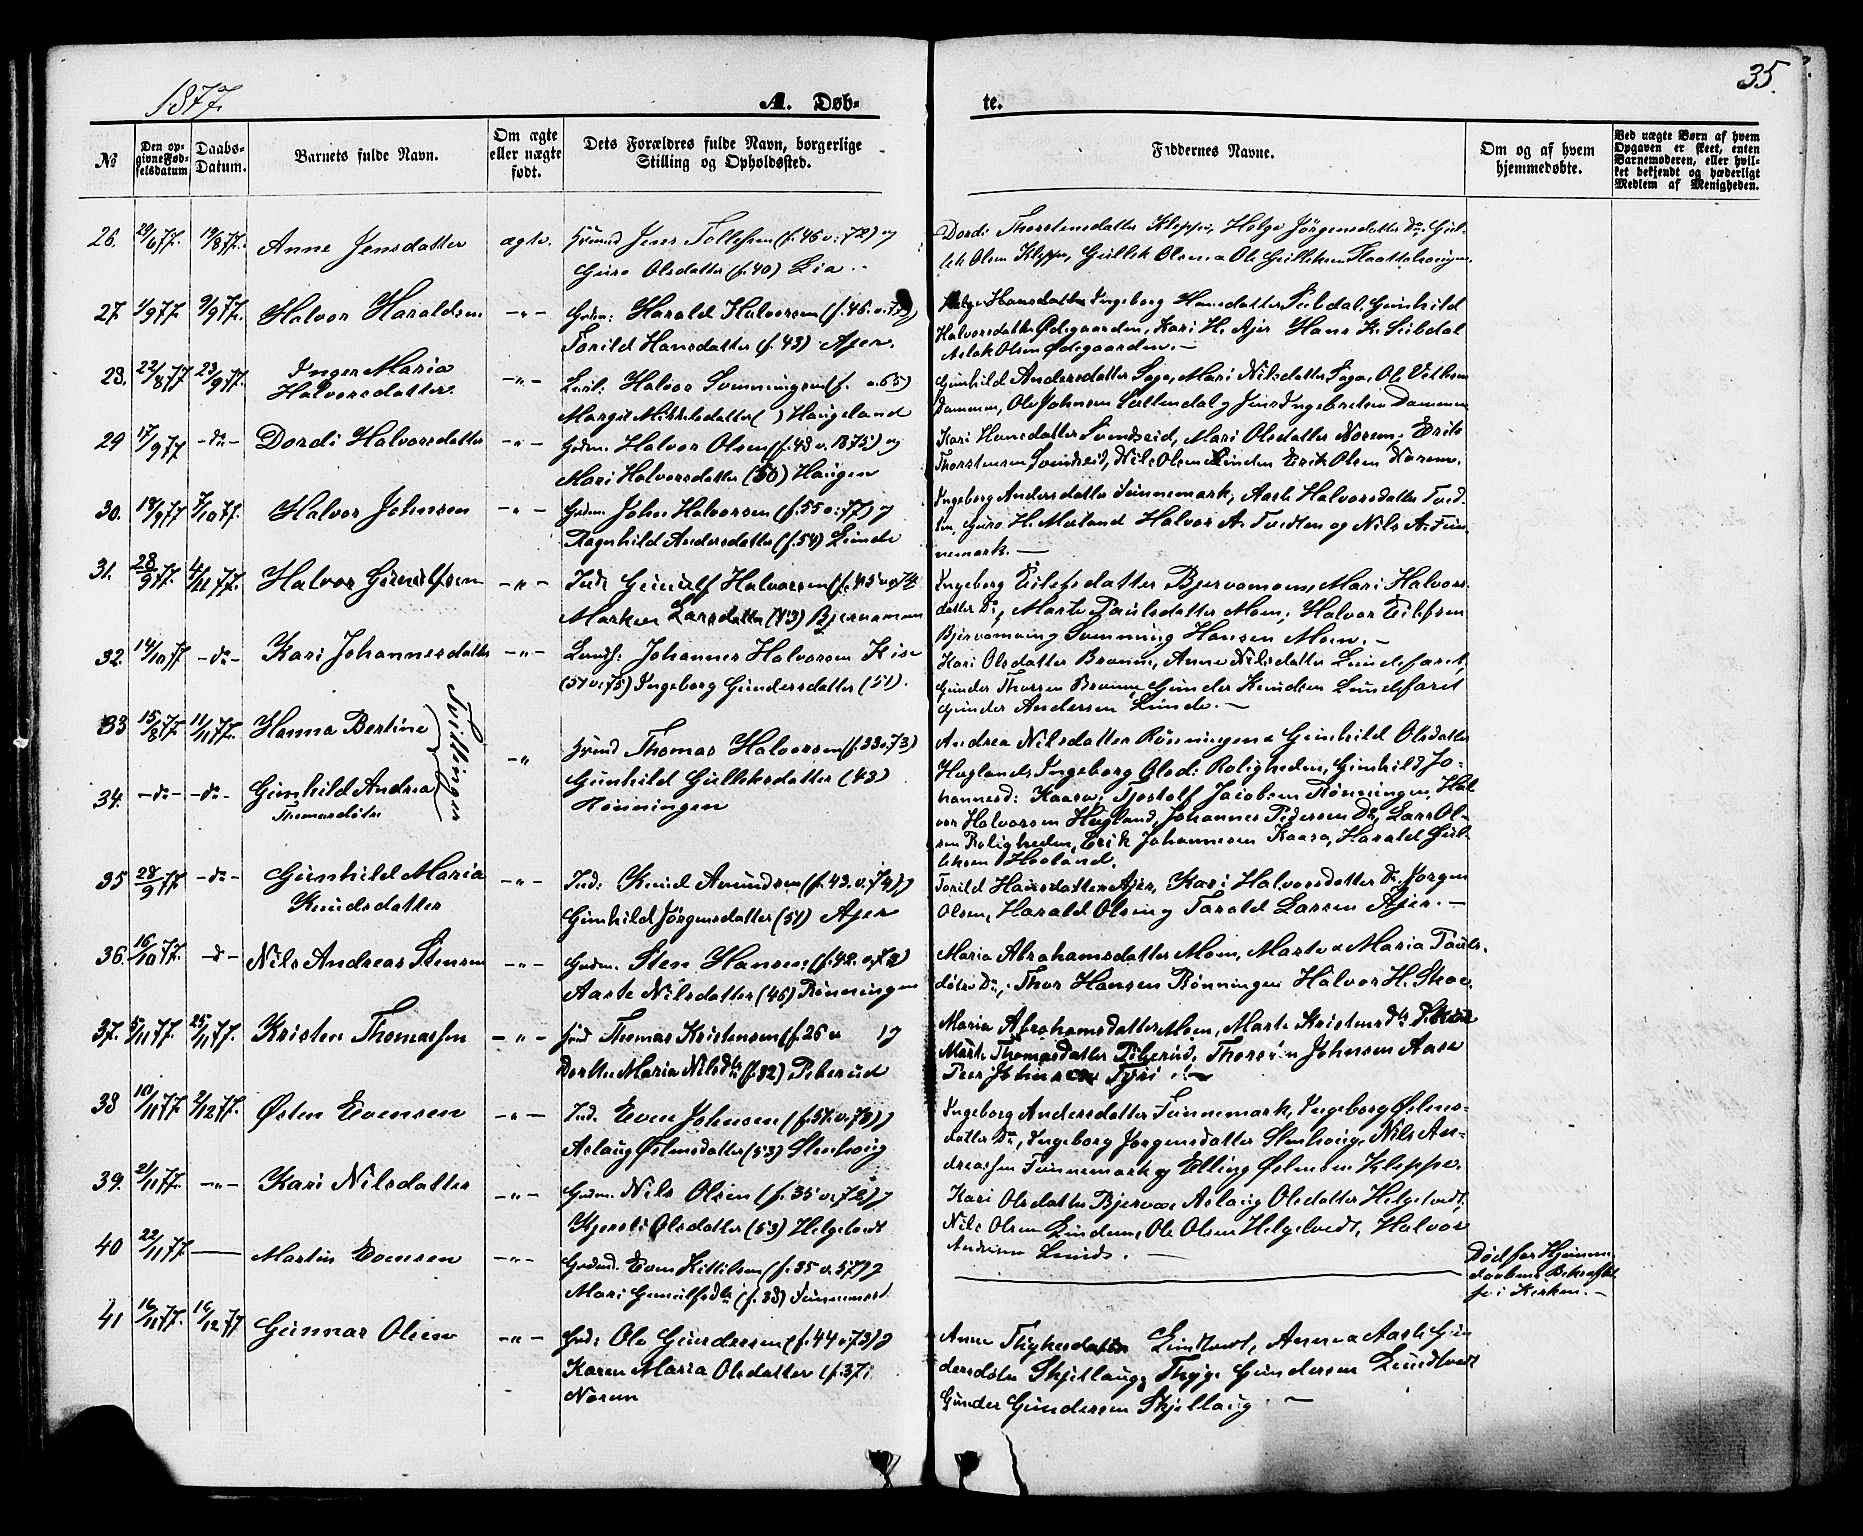 1877.
A. Døb-
te.
35.
No
Den op-
givne Fød-
selsdatum
Daabs-
Datum.
Barnets fulde Navn.
Om ægte
eller uægte
født.
Dets Forældres fulde Navn, borgerlige
Stilling og Opholdssted.
Faddernes Navne.
Om og af hvem
hjemmedøbte.
Ved uægte Børn af hvem
Opgaven er skeet, enten
Barnemoderen, eller hvil-
ket bekjendt og hæderligt
Medlem af Menigheden.
26. 29/6 77. 19/8 77. Anne Jensdatter ægte. Jens Tollefsen (f. 46 v. 72) og
Guro Olsdatter (f. 40) Lia
Dordi Thorstensdatter Kleppe, Helge Jörgensdatter Do. Gul-
lek Olsen Kleppe, Gullek Olsen & Ole Gulleksen
27. 1/9 77. 9/9 77. Halvor Haraldsen -"- Grdm: Harald Halvorsen (f. 46. v.
Torild Hansdatter (f. 43) Ajer.
Helge Hansdatter Ingeborg Hansdatter Seibdal, Gunhild
Halvorsdatter Ødegaarden, Kari H. Ajer Hans K. Seibdal
Aslak Olsen Ødegaarden. —
28. 22/8 77 23/9 77. Inger Maria
Halvorsdatter. -"- Halvor Svenningsen (f. v. 65)
Margit Mikkelsdatter ( ) Haugeland
Gunhild Andersdatter Saga, Mari Nilsdatter Saga, Ole
Dammen, Ole Johnsen og Jens Ingebretsen Dammen
29 17/9 77 -do- Dordi Halvorsdatter -"- Grdm. Halvor Olsen (f. 43 v. 1875) og
Mari Halvorsdatter (50) Haugen
Kari Hansdatter Svendseid, Mari Olsdatter Norem, Erik
Thorstensen Svendseid, Nils Olsen Linden Erik Olsen Norem.
30. 18/9 77 7/10 77. Halvor Johnsen -"- Grdm. John Halvorsen (f. 55 v. 77) og
Ragnhild Andersdatter (f. 54) Lunde
Ingeborg Andersdatter Funnemark, Aaste Halvorsdatter Tved-
ten, Guro H. Halvor A. Tvedten og Nils A. Fun-
nemark. —
31. 28/9 77. 4/11 77. Halvor Gunulfsen -"- Ind: Gunulf Halvorsen (f. 45 v. 74
Marken Larsdatter (43) Bjervamoen
Ingeborg Eilefsdatter Bjervamoen, Mari Halvors-
datter Do, Marte Paulsdatter Moen, Halvor Eilefsen
Bjervamoen og Svenning Hansen Moen. —
32. 14/10 77 -do- Kari Johannesdatter -"- Johannes Halvorsen Kise
(51 v. 75) Ingeborg Gundersdatter (51).
Kari Olsdatter Brenne, Anne Nilsdatter Lundefaret,
Gunder Thorsen Brenne Gunder Knudsen Lundefaret
Gunder Andersen Lunde. —
33 15/8 77. 11/11 77. Hanna Bertine
Tvillinger
-"- Thomas Halvorsen (f. 33 v. 73)
Gunhild Gulleksdatter (43)
Rönningen
34. -do- -do- Gunhild Andrea
Thomasdötre
Andrea Nilsdatter Rönningen & Gunhild Olsdatter
Hogland, Ingeborg Olsd: Roligheden, Gunhild Jo-
hannesd: Kaasa, Tjostolf Jacobsen Rönningen, Hal-
vor Halvorsen Hogland, Johannes Pedersen Do, Lars Ol-
sen Roligheden, Erik Johannesen Kaasa, Harald Gul-
leksen Hooland.
35 28/9 77. -do- Gunhild Maria
Knudsdatter -"- Ind: Knud Amundsen (f. 43. v. 74) og
Gunhild Jörgensdatter (51) Ajer
Torild Hansdatter Ajer, Kari Halvorsdatter Do. Jörgen
Olsen, Harald Olsen og Tarald Larsen Ajer. —
36. 16/10 77. -do- Nils Andreas Stensen -"- Grdm. Sten Hansen (f. 42. v. 72)
Aaste Nilsdatter (46) Rönningen
Maria Abrahamsdatter Moen, Marte & Maria Pauls-
døtre Do, Thor Hansen Rönningen Halvor H. Skoe.
37. 5/11 77. 25/11 77. Kristen Thomassen -"- Thomas Kristensen (f. 26 v ) og
Dorthe Maria Nilsdtr (f. 32) Peberud
Maria Abrahamsdatter Moen, Marte Kristensdtr
Marte Thomasdatter Peberud, Johnsen Aase
Peer Johnsen Tyri —
38 10/11 77. 2/12 77. Østen Evensen -"- Ind. Even Johnsen (f. 51. v. 78) og
Aslaug Østensdatter (53) Stenhoug
Ingeborg Andersdatter Funnemark, Ingeborg Østens-
datter Do, Ingeborg Jörgensdatter Stenhoug, Nils An-
dreassen Funnemark og Elling Østensen Kleppe.
39. 21/11 77. -"- Kari Nilsdatter -"- Grdm. Nils Olsen (f. 35 v. 72) og
Kjersti Olsdatter (53) Helgetvedt
Kari Olsdatter Bjervæ, Aslaug Olsdatter Helgetvedt,
Nils Olsen Lindem, Ole Olsen Helgetvedt, Halvor
Andersen Lunde. —
40 22/11 77 — Martin Evensen -"- Grdmd. Even Kittilsen (f. 35 v. 57) og
Mari Gunulfsdtr (f. 38) Funnemark
Död før Hjemme-
daabens Bekræftel-
se i Kirken. —
41 16/11 77. 16/12 77 Gunnar Olsen -"- Grd: Ole Gundersen (f. 44 v. 73) og
Karen Maria Olsdatter (f. 37)
Norem
Anne Thygesdatter Lindtvedt, Anne & Aaste Gun-
dersdøtre Skjellaug, Thyge Gundersen Lundtvedt
Gunder Gundersen Skjellaug. —